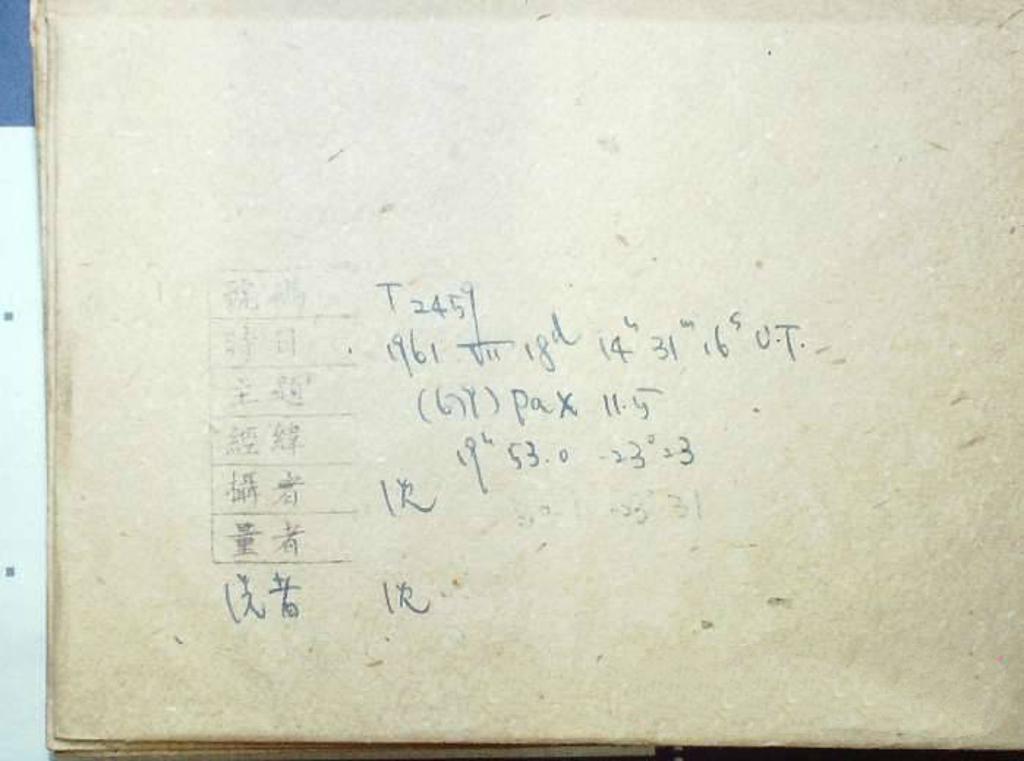 號碼 T 2459
時日 1961 VII 18d 14h 31m 16s U.T.
主題 (679) Pax 11.5
經緯 19h 53.0 -23°23
攝者 沈
-23 31
量者
洗者 沈